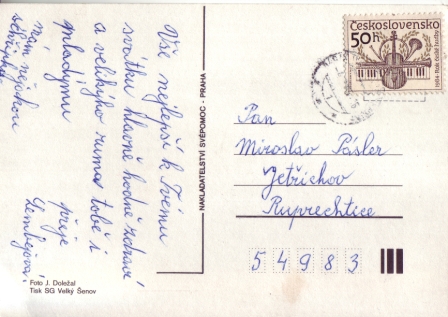 Vše nejlepší k Tvému
svátku hlavně hodně zdraví
a velikého rumas tobě i
mladýmu
přeje
Lembejová
nám nějakou
Foto J. Doležal
Tisk SG Velký Šenov
NAKLADATELSTVÍ SVÉPOMOC - PRAHA
Československo
50h
Pan
Miroslav Pásler
Jetřichov
Ruprechtice
54983